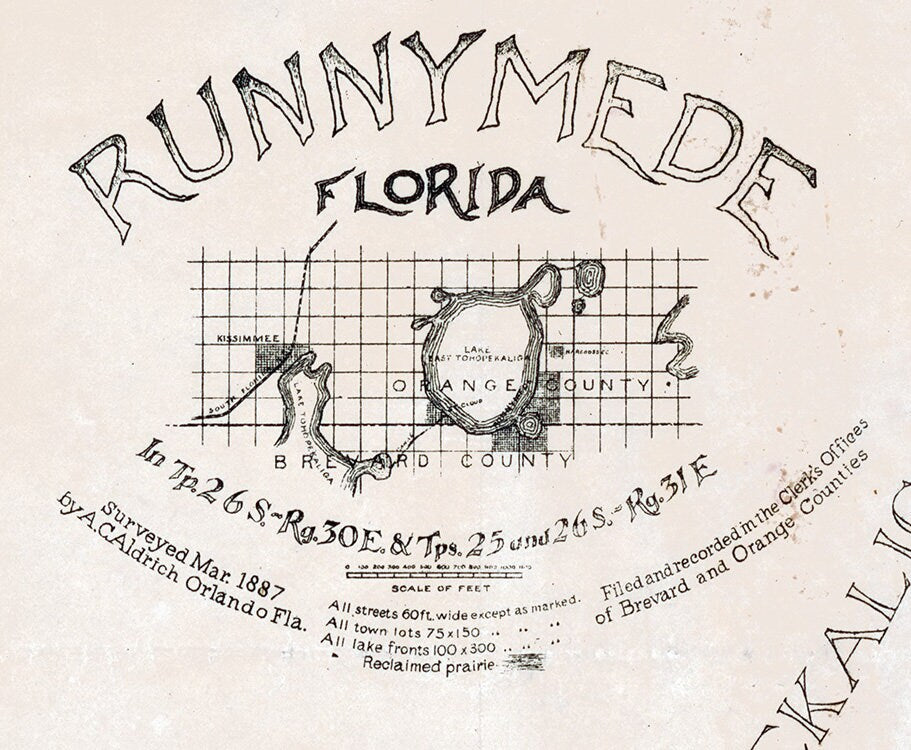 RUNNYMEDE
FLORIDA
KISSIMMEE
LAKE
EAST TOHOPEKALIGA
ORANGE COUNTY
SOUTH FLORI
CLOUD
LAKE TOHOPEKALIGA
BREVARD COUNTY
In Tp. 26 S.-Rg. 30 E. & Tps. 25 and 26 S.-Rg. 31 E
Surveyed Mar. 1887
by A.C. Aldrich Orlando Fla.
Filed and recorded in the Clerk's Offices
of Brevard and Orange Counties
0 100 200 300 400 500 600 700 800 900 1000
SCALE OF FEET
All streets 60 ft. wide except as marked.
All town lots 75 x 150 " " "
All lake fronts 100 x 300 " " "
Reclaimed prairie
EKALIG